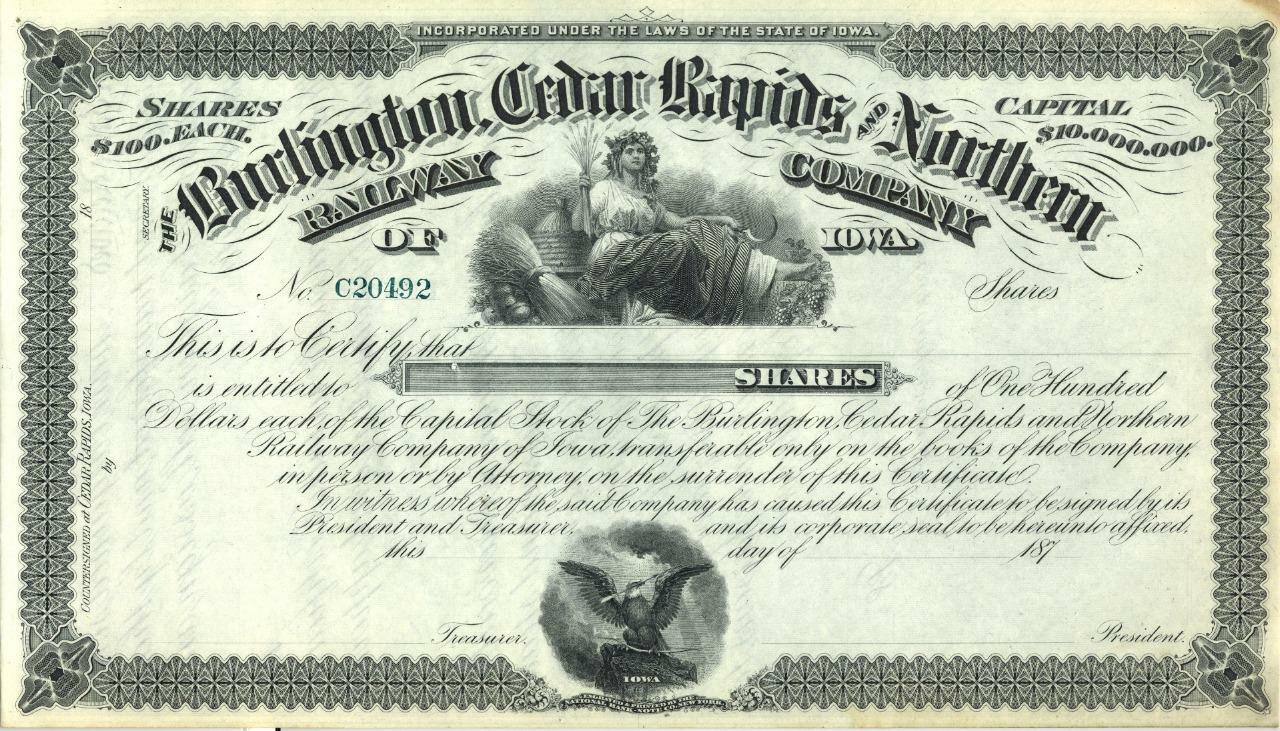 INCORPORATED UNDER THE LAWS OF THE STATE OF IOWA.
SHARES $100. EACH.
CAPITAL $10.000.000.
THE Burlington, Cedar Rapids AND Northern
RAILWAY COMPANY
OF IOWA.
No. C20492 Shares
This is to Certify, that
is entitled to SHARES of One Hundred
Dollars each, of the Capital Stock of The Burlington, Cedar Rapids and Northern
Railway Company of Iowa, transferable only on the books of the Company,
in person or by Attorney, on the surrender of this Certificate.
In witness whereof the said Company has caused this Certificate to be signed by its
President and Treasurer, and its corporate seal to be hereunto affixed,
this day of 187
Treasurer. President.
IOWA
ENGRAVED & PRINTED BY THE
NATIONAL BANK-NOTE CO. NEW YORK
COUNTERSIGNED at CEDAR RAPIDS, IOWA. 18
by SECRETARY.